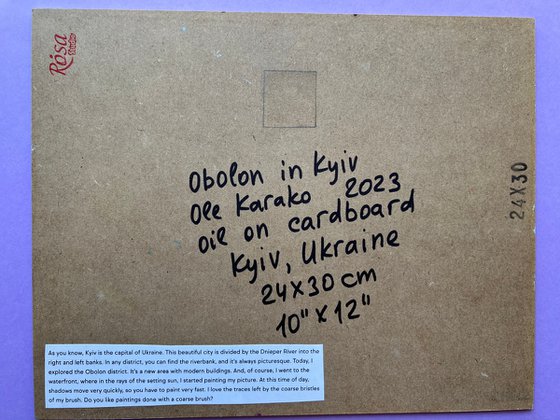 Rósa
Studio
24X30
Obolon in Kyiv
Ole Karako 2023
oil on cardboard
Kyiv, Ukraine
24X30 cm
10" X 12"
As you know, Kyiv is the capital of Ukraine. This beautiful city is divided by the Dnieper River into the
right and left banks. In any district, you can find the riverbank, and it's always picturesque. Today, I
explored the Obolon district. It's a new area with modern buildings. And, of course, I went to the
waterfront, where in the rays of the setting sun, I started painting my picture. At this time of day,
shadows move very quickly, so you have to paint very fast. I love the traces left by the coarse bristles
of my brush. Do you like paintings done with a coarse brush?